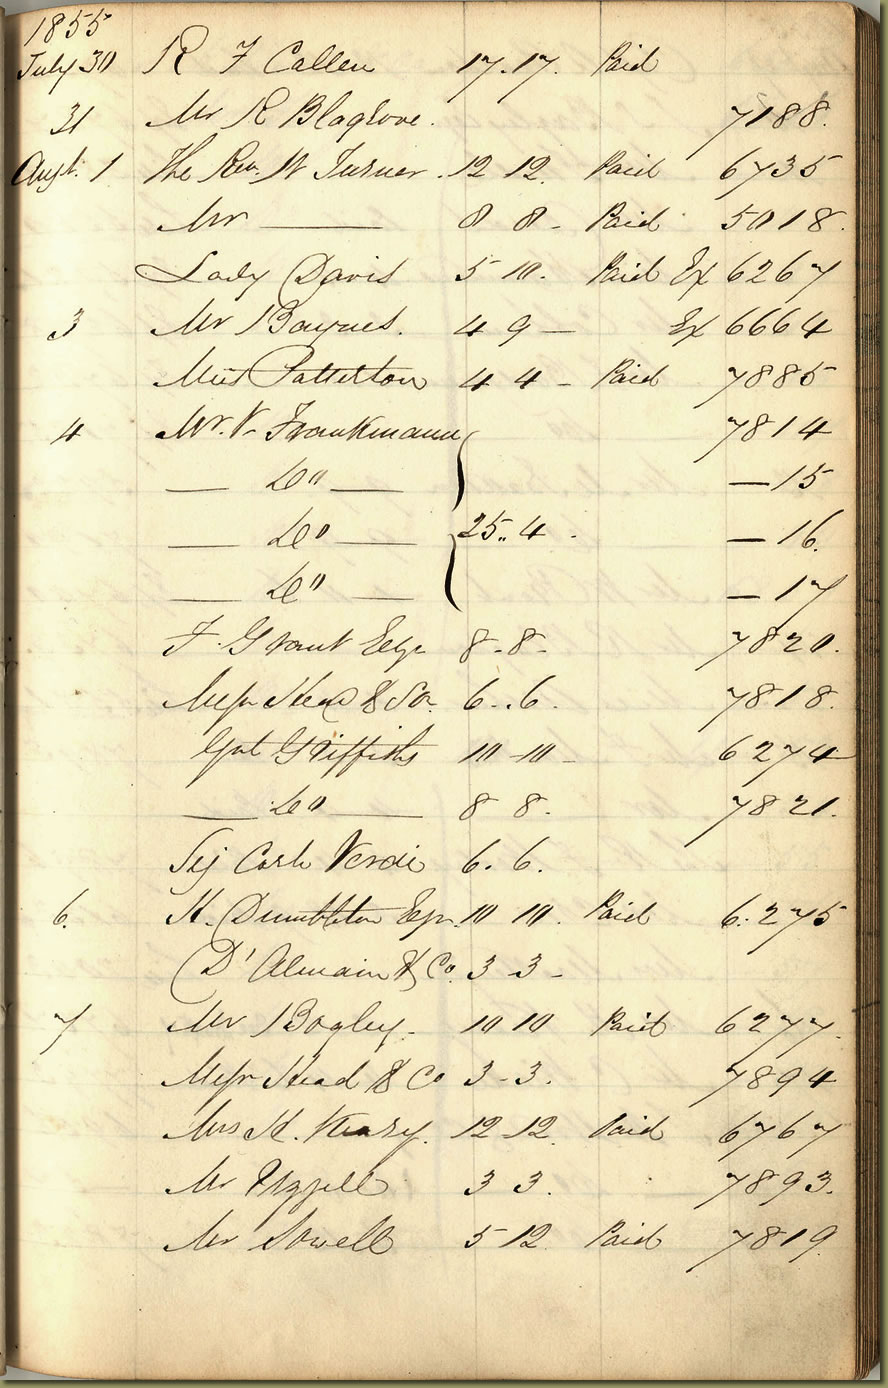 1855
July 30 R F Callen 17.17. Paid
31 Mr R Blagrove. 7188.
Augt. 1 The Rev. W Turner. 12 12. Paid 6735
Mr —— 8 8 - Paid 5018.
Lady Davis 5 10. Paid Ex 6267
3 Mr Baynes. 4 9 — Ex 6664
Miss Patterton 4 4 - Paid 7885
4 Mr. V. Frankmann 7814
— Do — — 15
— Do — 25.. 4. — 16.
— Do — — 17
F. Grant Esqr 8.8- 7820.
Messr Head & So. 6..6. 7818.
Griffiths 10 -10 - 6274
— Do — 8 8. 7821.
Sig Carlo Verdi 6. 6.
6. H. Dumbleton Esqr. 10 10. Paid 6.275
D'Almain & Co. 3 3 -
7 Mr Bagley. 10 10 Paid 6277.
Messr Head & Co 3-3. 7894
Mrs H. 12 12. Paid 6767
Mr Uzzell 3 3. 7893.
Mr Sowell 5 12 Paid 7819